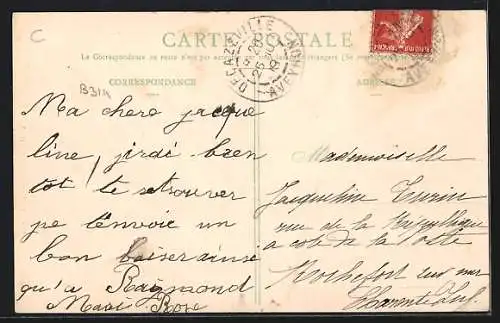 C
CARTE POSTALE
La Correspondance au recto n'est pas
CORRESPONDANCE
ADRESSE
DECAZEVILLE
AVEYRON
B314
Ma chere jacque
line, j'irai bien
tot te retrouver
je t'envoie un
bon baiser ainsi
qu'a Raymond
Rose
Mademoiselle
Jacqueline Turin
rue de la République
a coté de la Poste
Rochefort sur mer
Charente Inf.